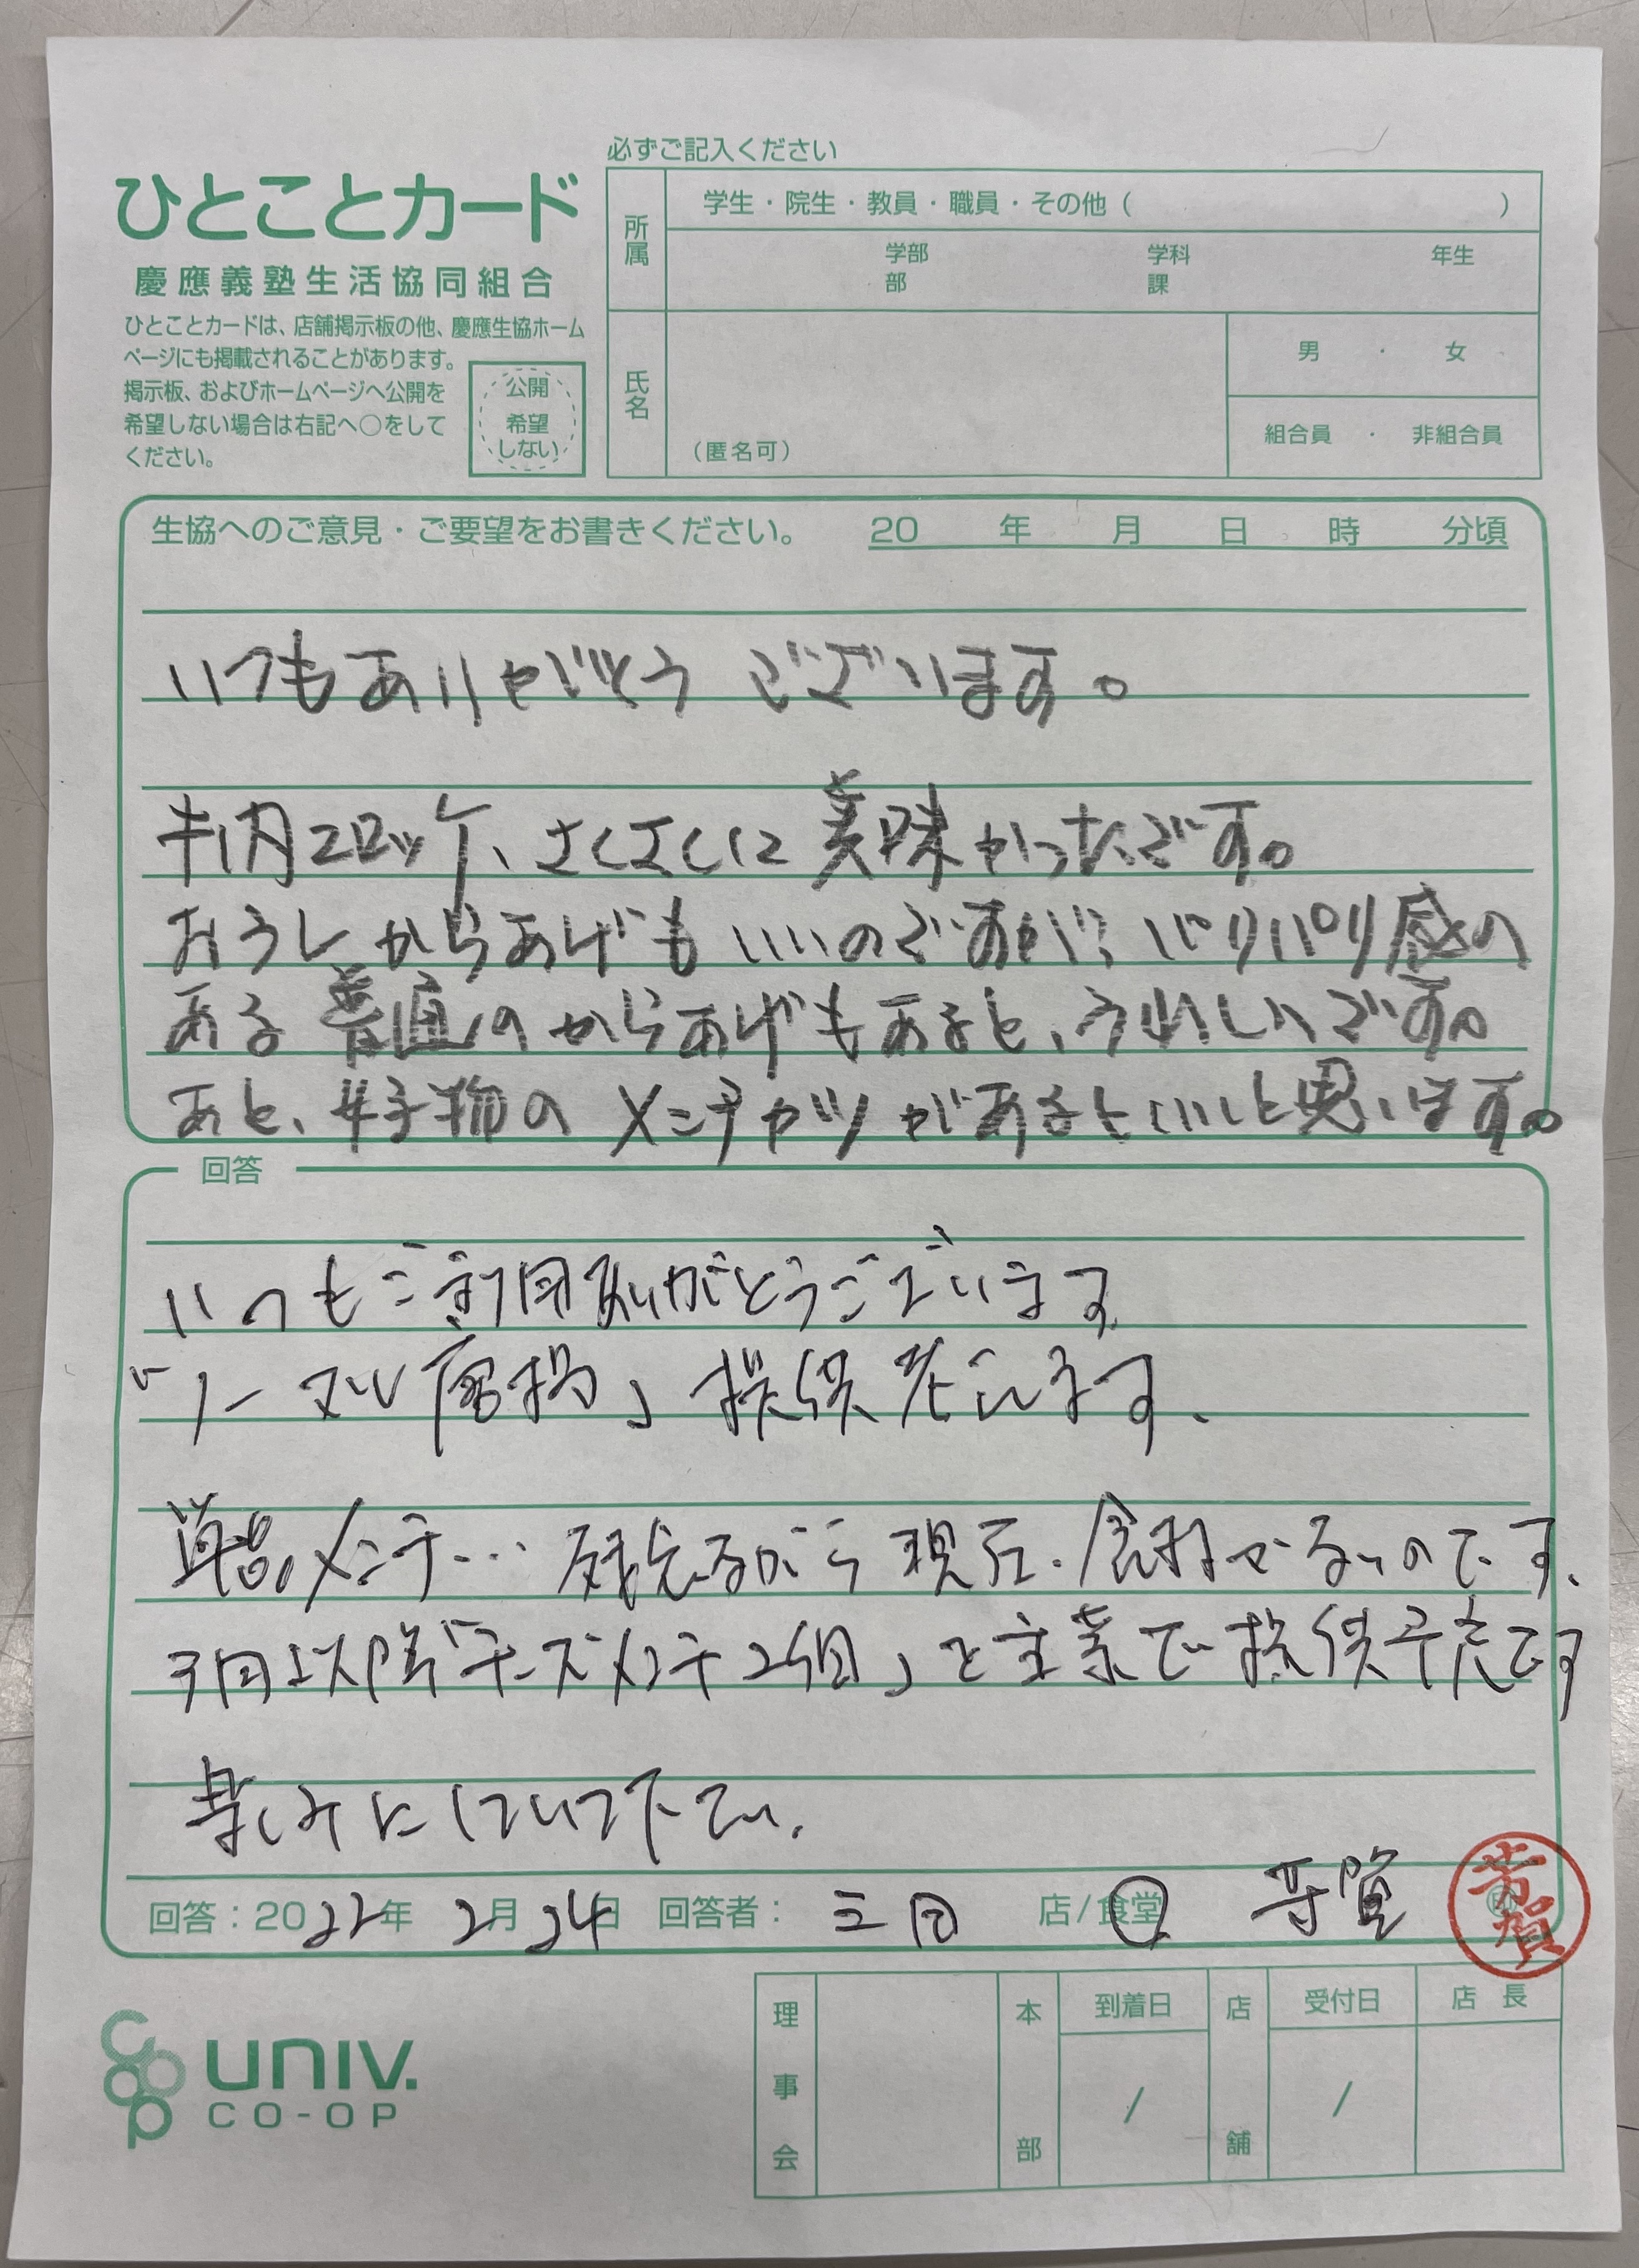 必ずご記入ください
ひとことカード
慶應義塾生活協同組合
ひとことカードは、店舗掲示板の他、慶應生協ホーム
ページにも掲載されることがあります。
掲示板、およびホームページへ公開を
希望しない場合は右記へ○をして
ください。
公開
希望
しない
所属
学生・院生・教員・職員・その他（ ）
学部 学科 年生
部 課
氏名
（匿名可）
男 ・ 女
組合員 ・ 非組合員
生協へのご意見・ご要望をお書きください。 20 年 月 日 時 分頃
いつもありがとうございます。
牛肉コロッケ、さくさくに美味かったです。
おろしからあげもいいのですが、パリパリ感の
ある普通のからあげもあると、うれしいです。
あと、好物のメンチカツがあるといいと思います。
回答
いつもご利用ありがとうございます
「ノーマル唐揚」提供考えます、
単品メンチ… 残念ながら現在、食材がないのです、
3月以降「チーズメンチ2個」と主菜で提供予定です
楽しみにしていて下さい、
回答：2022年 2月24日 回答者： 三田 店/食堂 芳賀
芳賀
UNIV.
CO-OP
理事会 本部 到着日 店舗 受付日 店長
/ /